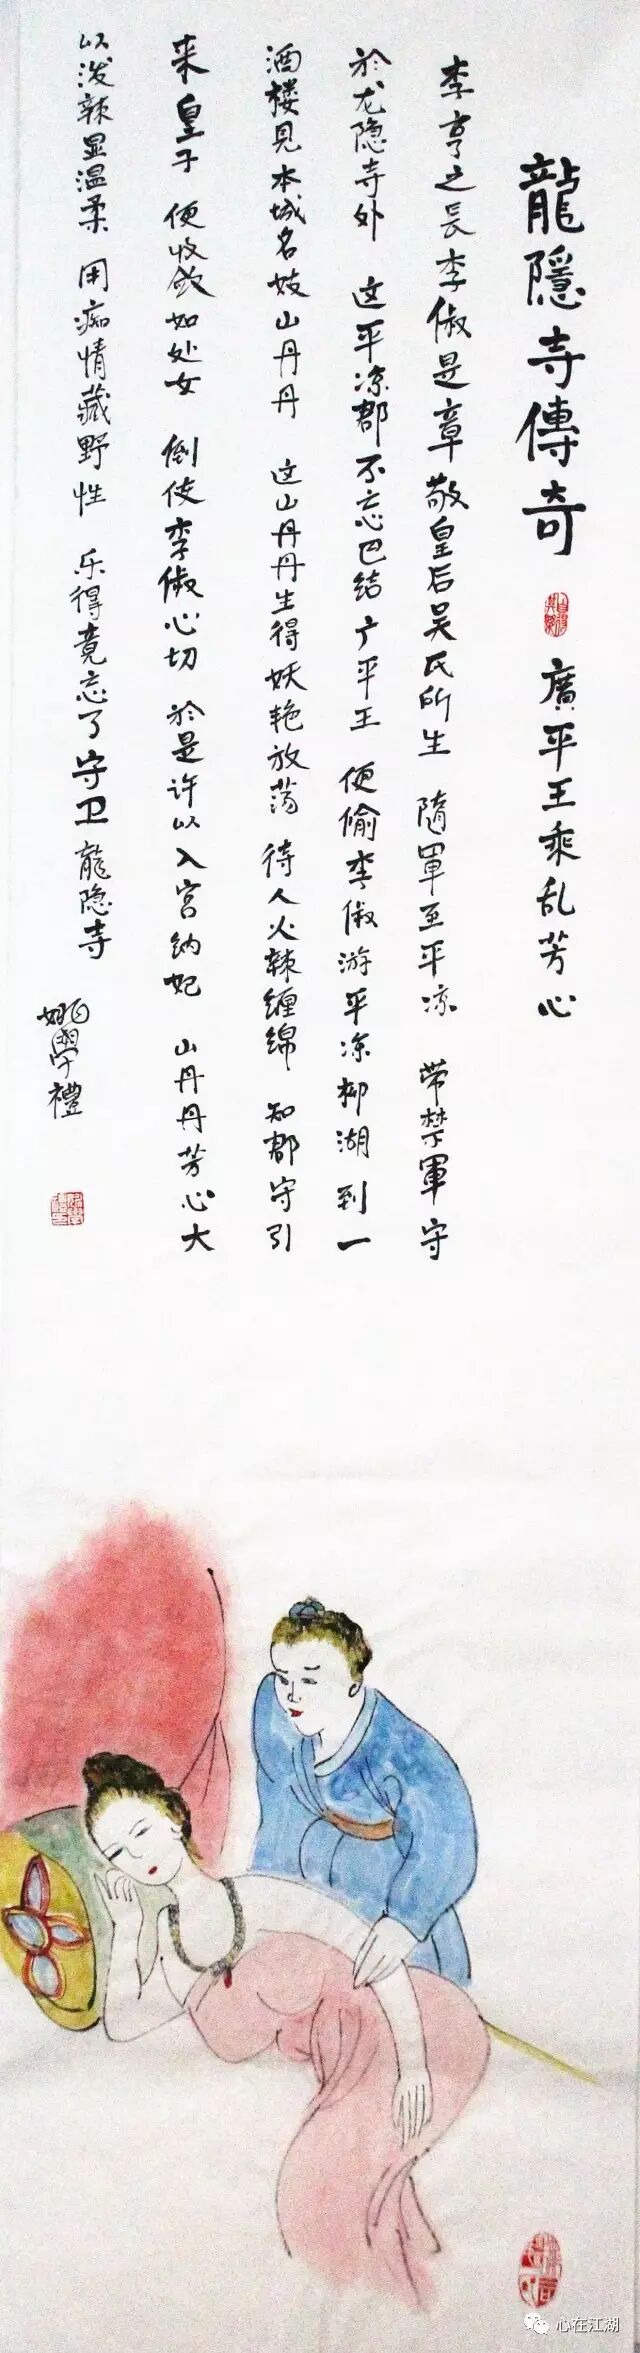 龍隱寺傳奇 廣平王乘乱芳心
李亨之長李俶是章敬皇后吴氏所生 隨軍至平凉 带禁軍守
於龙隐寺外 这平凉郡不忘巴结广平王 便偷李俶游平凉柳湖到一
酒楼見本城名妓山丹丹 这山丹丹生得妖艳放荡 待人火辣缠绵 知郡守引
来皇子 便收敛如处女 倒使李俶心切 於是许以入宫纳妃 山丹丹芳心大
以泼辣显温柔 用痴情藏野性 乐得竟忘了守卫龍隐寺
姚學禮
心在江湖